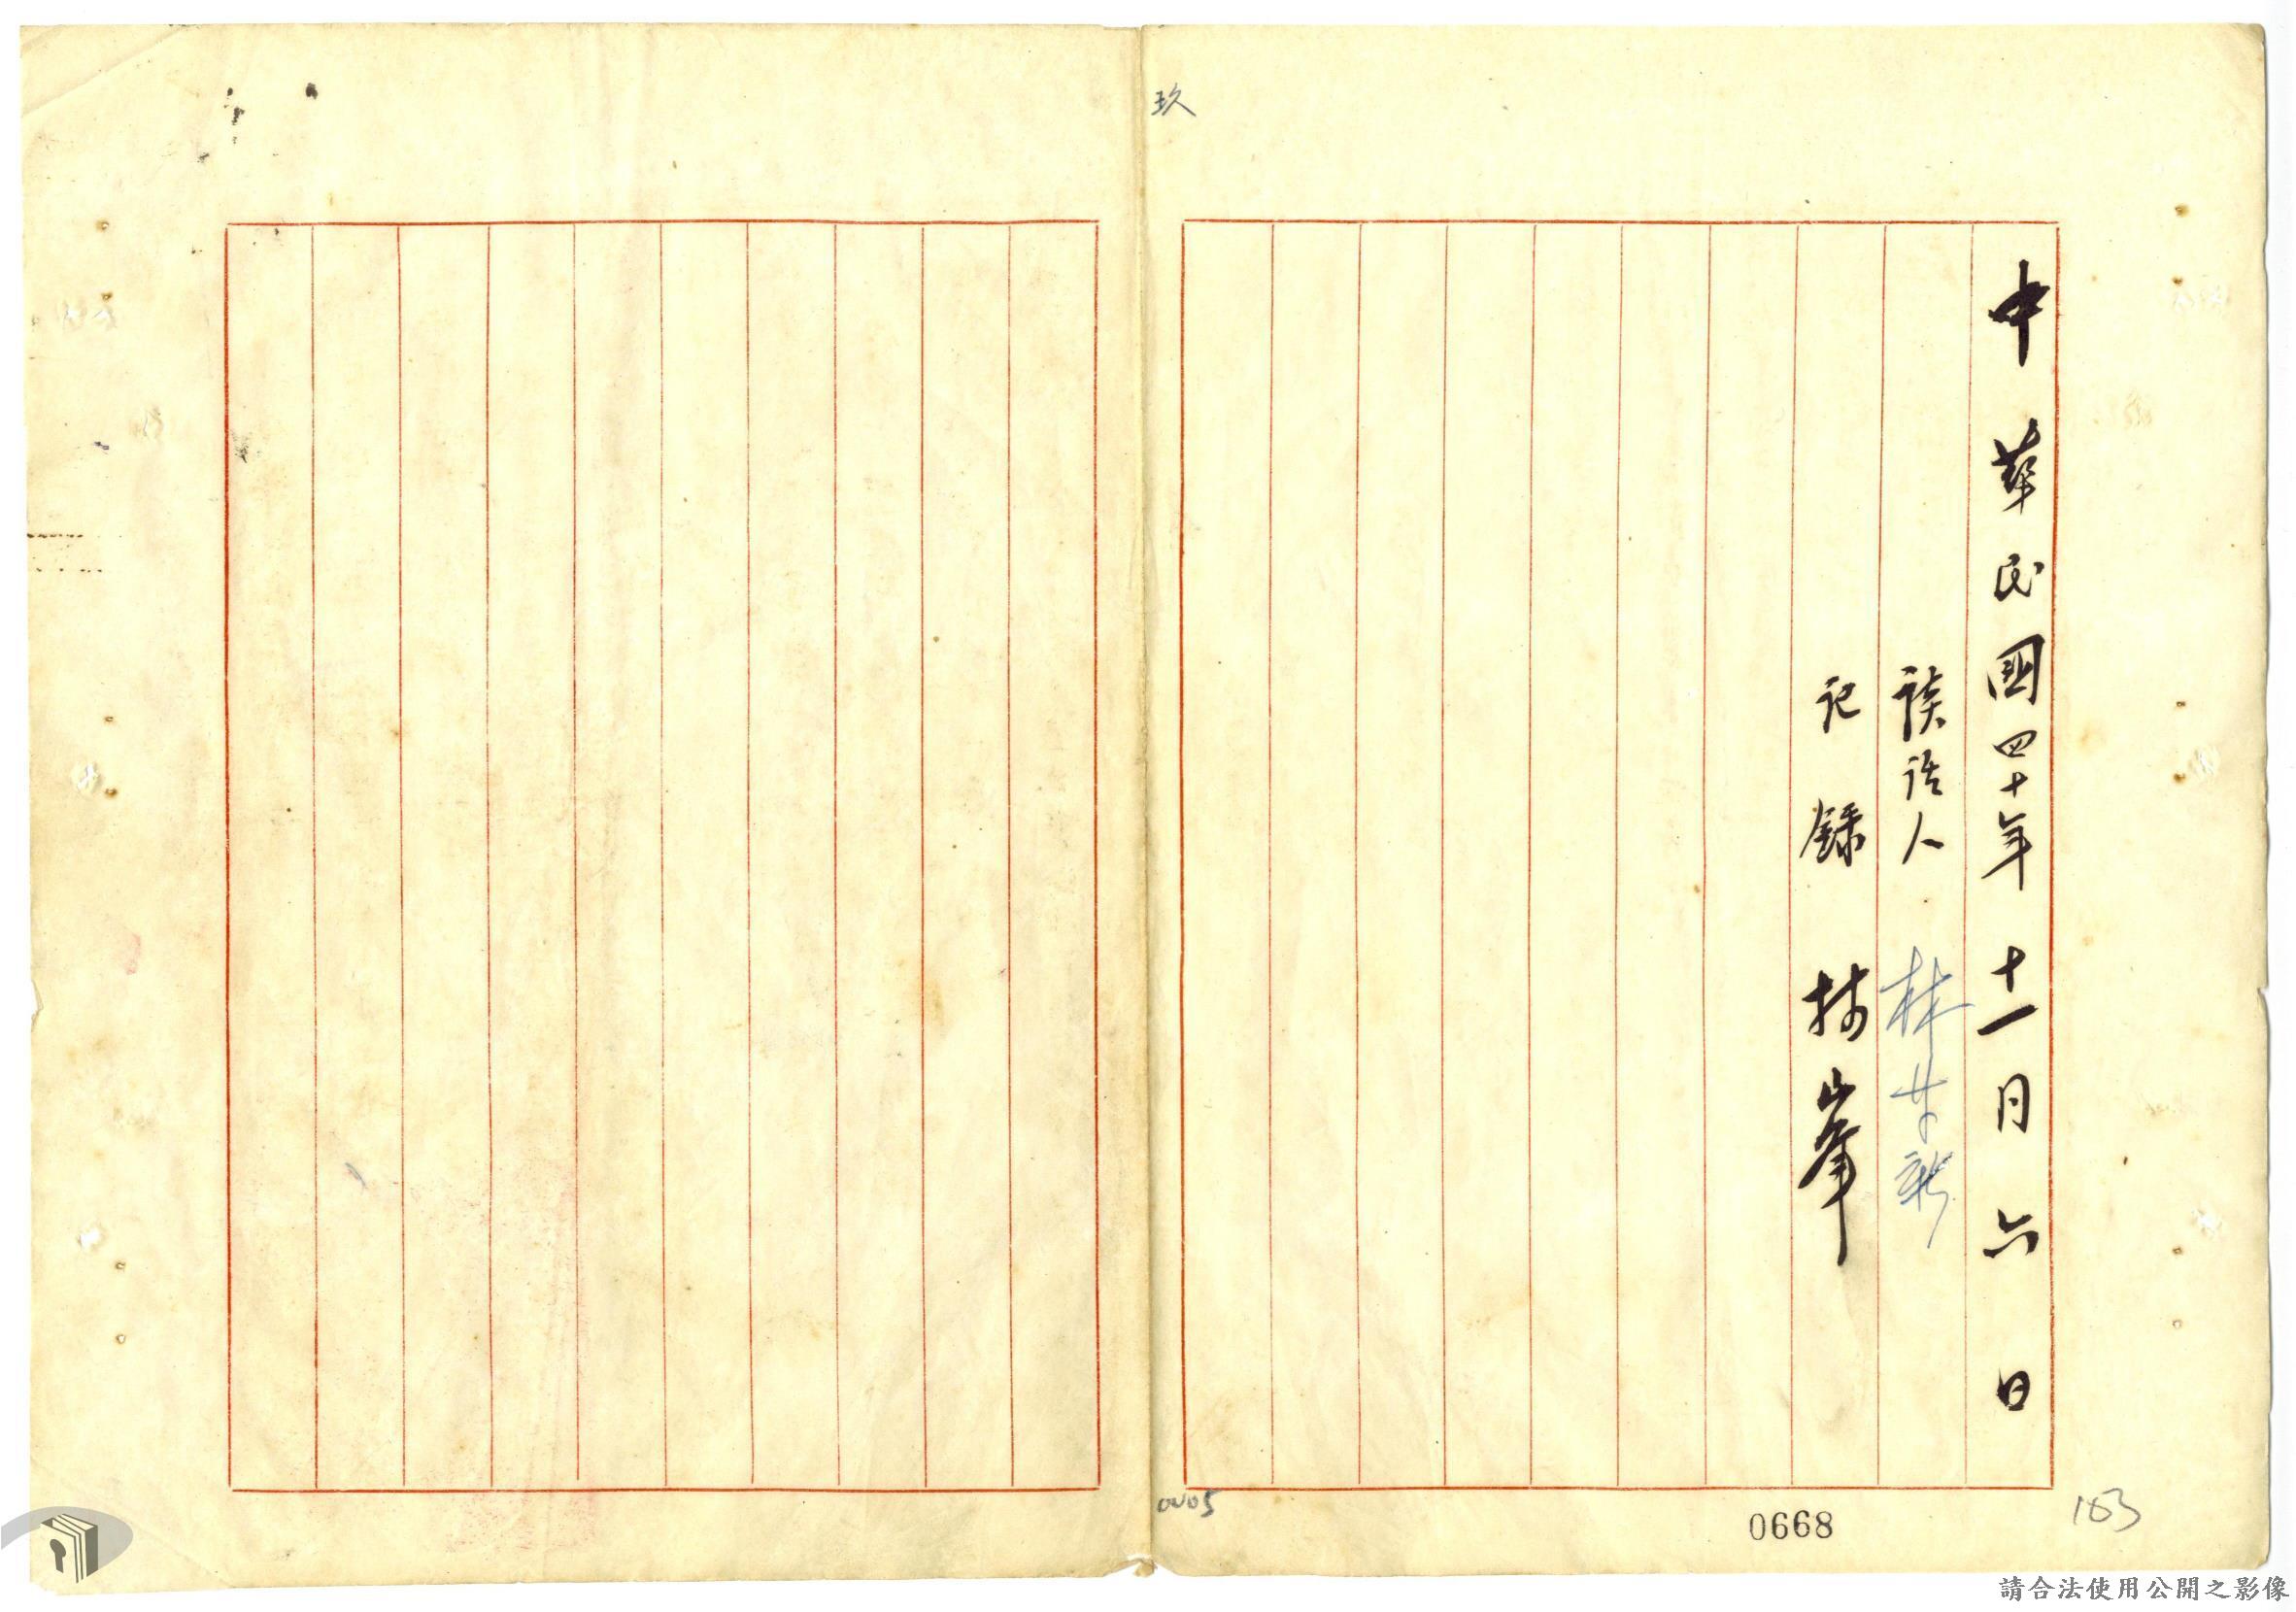 中華民國四十年十一月六日
談話人 林
記錄 林峯
玖
0005
0668
183
請合法使用公開之影像